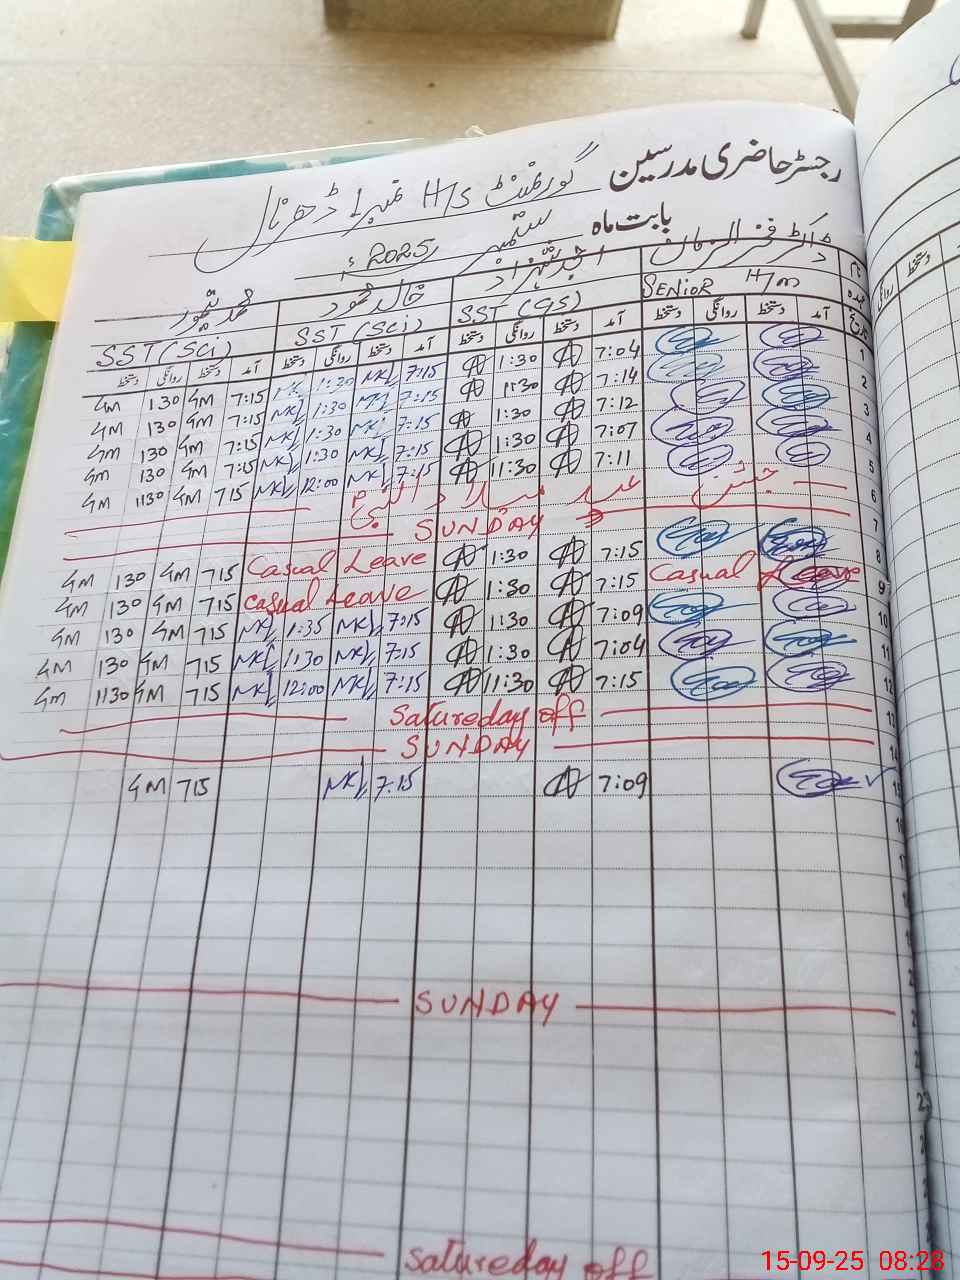 رجسٹر حاضری مدرسین گورنمنٹ H/S نمبر 1 ڈھرنال
بابت ماہ ستمبر 2025ء
نام ڈاکٹر فخر الزمان امجد شہزاد خالد محمود محمد تیمور
عہدہ SENIOR H/m SST (GS) SST (Sci) SST (Sci)
تاریخ آمد دستخط روانگی دستخط آمد دستخط روانگی دستخط آمد دستخط روانگی دستخط آمد دستخط روانگی دستخط
1 7:04 1:30 7:15 MKJ 1:30 7:15 GM 130 GM
2 7:14 1:30 7:15 1:30 MKJ 7:15 GM 130 GM
3 7:12 1:30 7:15 MKJ 1:30 MKJ 7:15 GM 130 GM
4 7:07 1:30 7:15 MKJ 1:30 MKJ 7:15 GM 130 GM
5 7:11 11:30 7:15 MKJ 12:00 MKJ 715 GM 1130 GM
6 جشن عید میلاد النبیؐ
7 SUNDAY
8 7:15 1:30 Casual Leave 715 GM 130 GM
9 Casual Leave 7:15 1:30 Casual Leave 715 GM 130 GM
10 7:09 1:30 7:15 MKJ 1:35 MKJ 715 GM 130 GM
11 7:04 1:30 7:15 MKJ 1130 MKJ 715 GM 130 GM
12 7:15 11:30 7:15 MKJ 12:00 MKJ 715 GM 1130 GM
13 Satureday off
14 SUNDAY
15 7:09 7:15 MKJ 715 GM
SUNDAY
Satureday off
15-09-25 08:28